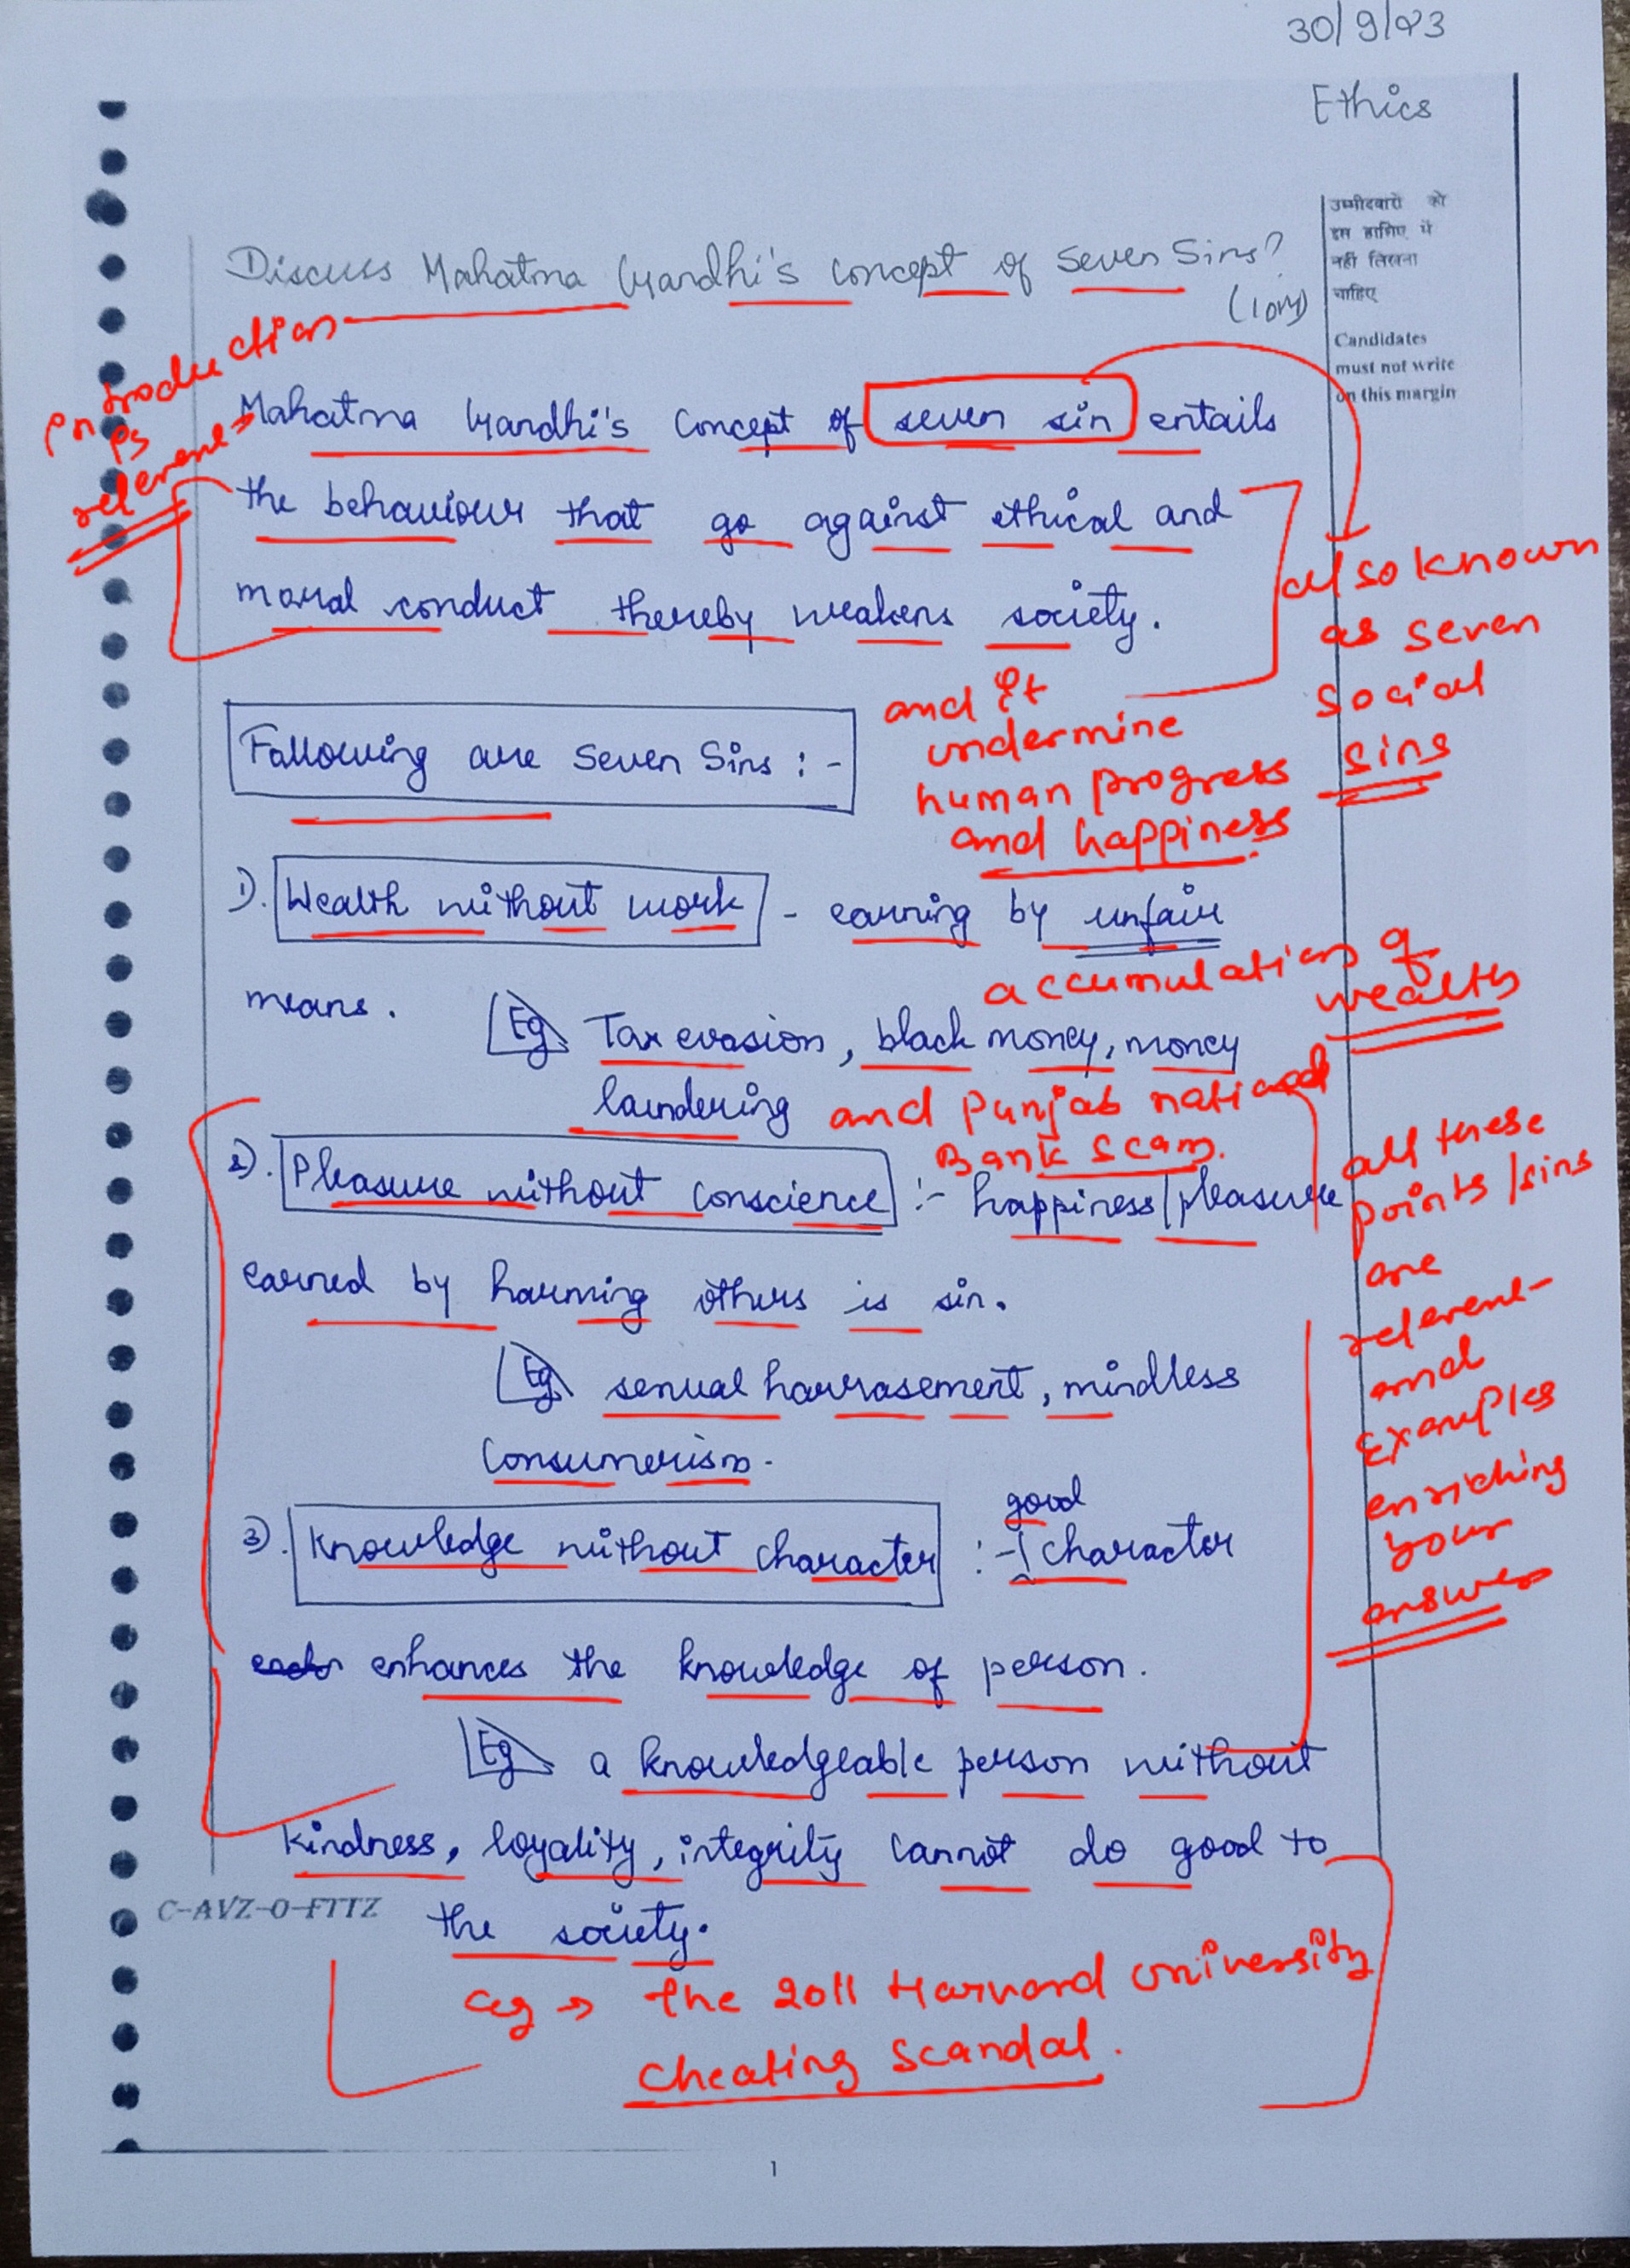 30/9/23
Ethics
उम्मीदवारों को
इस हाशिए में
नहीं लिखना
चाहिए
Candidates
must not write
on this margin
Discuss Mahatma Gandhi's concept of Seven Sins?
(10M)
Introduction
is
relevent
Mahatma Gandhi's Concept of seven sin entails
the behaviour that go against ethical and
moral conduct thereby weakens society.
also known
as seven
social
sins
and it
undermine
human progress
and happiness.
Following are Seven Sins :-
1). Wealth without work - earning by unfair
means.
accumulation of
wealth
Eg Tax evasion, black money, money
laundering and Punjab national
Bank scam.
2). Pleasure without conscience :- happiness/pleasure
earned by harming others is sin.
Eg sexual harrasement, mindless
Consumerism.
all these
points/sins
are
relevent
and
Examples
enriching
your
answer
3). Knowledge without character :- good character
enhances the knowledge of person.
Eg a knowledgeable person without
kindness, loyality, integrity cannot do good to
the society.
C-AVZ-O-FTTZ
eg → the 2011 Harvard University
Cheating Scandal.
1